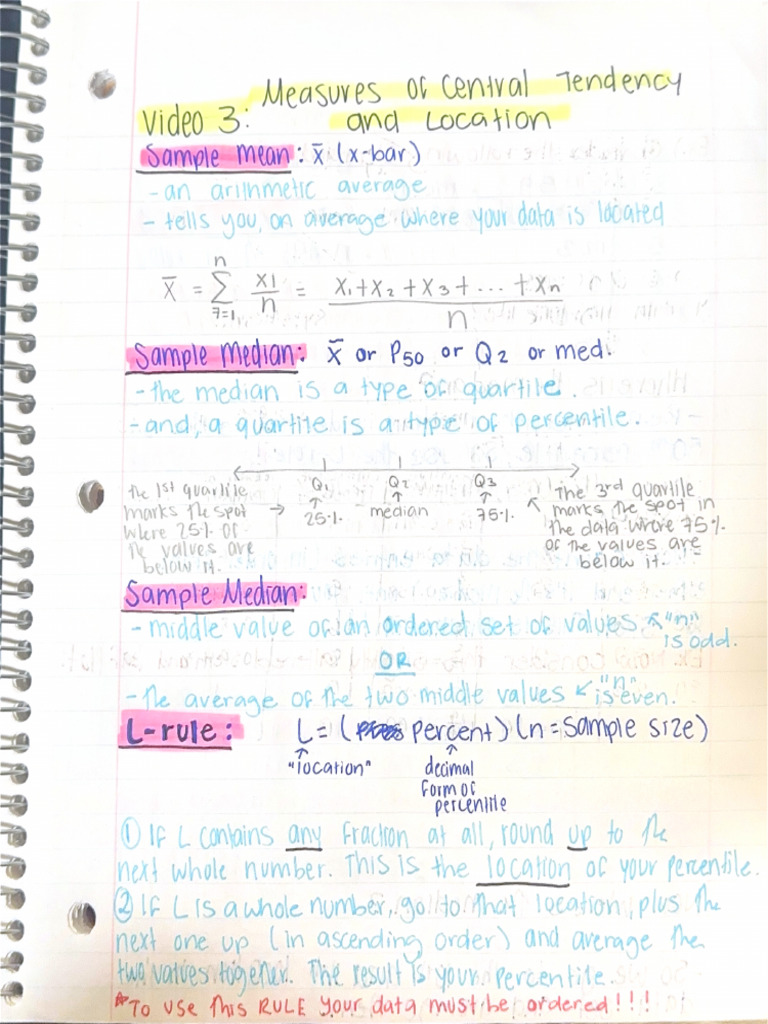 Measures of Central Tendency
Video 3: and Location
Sample Mean: x̄ (x-bar)
- an arithmetic average
- tells you, on average where your data is located
x̄ = n Σ 7=1 x1/n = x₁+x₂+x₃+...+xn / n
Sample Median: x̄ or P₅₀ or Q₂ or med.
- the median is a type of quartile.
- and, a quartile is a type of percentile.
Q₁ Q₂ Q₃
↑ 25% ↑ median ↑ 75%
the 1st quartile
marks the spot →
where 25% of
the values are
below it.
↖ The 3rd quartile
marks the spot in
the data where 75%
of the values are
below it.
Sample Median:
- middle value of an ordered set of values ↖ "n" is odd.
OR
- the average of the two middle values ↙ "n" is even.
L-rule: L = (percent)(n = sample size)
↑ "location"
↑ decimal
form of
percentile
① If L contains any fraction at all, round up to the
next whole number. This is the location of your percentile.
② If L is a whole number, go to that location, plus the
next one up (in ascending order) and average the
two values together. The result is your percentile.
*To use this RULE your data must be ordered!!!